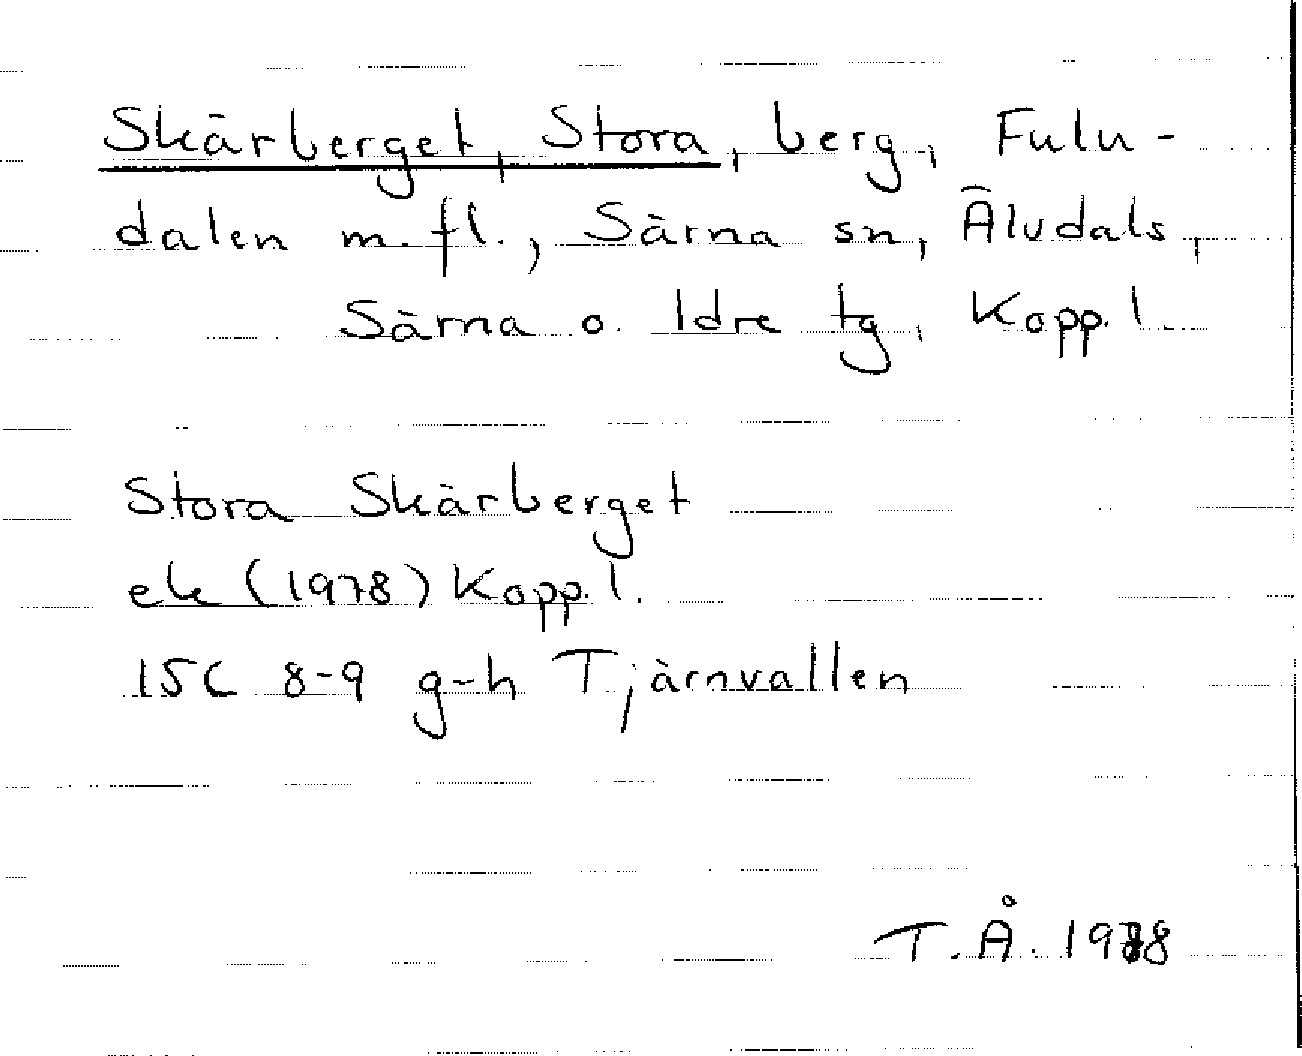 Skärberget, Stora, berg, Fulu-
dalen m.fl., Särna sn, Älvdals,
Särna o. Idre tg, Kopp. l.
Stora Skärberget
ek (1978) Kopp. l.
15C 8-9 g-h Tjärnvallen
T. Å. 1988